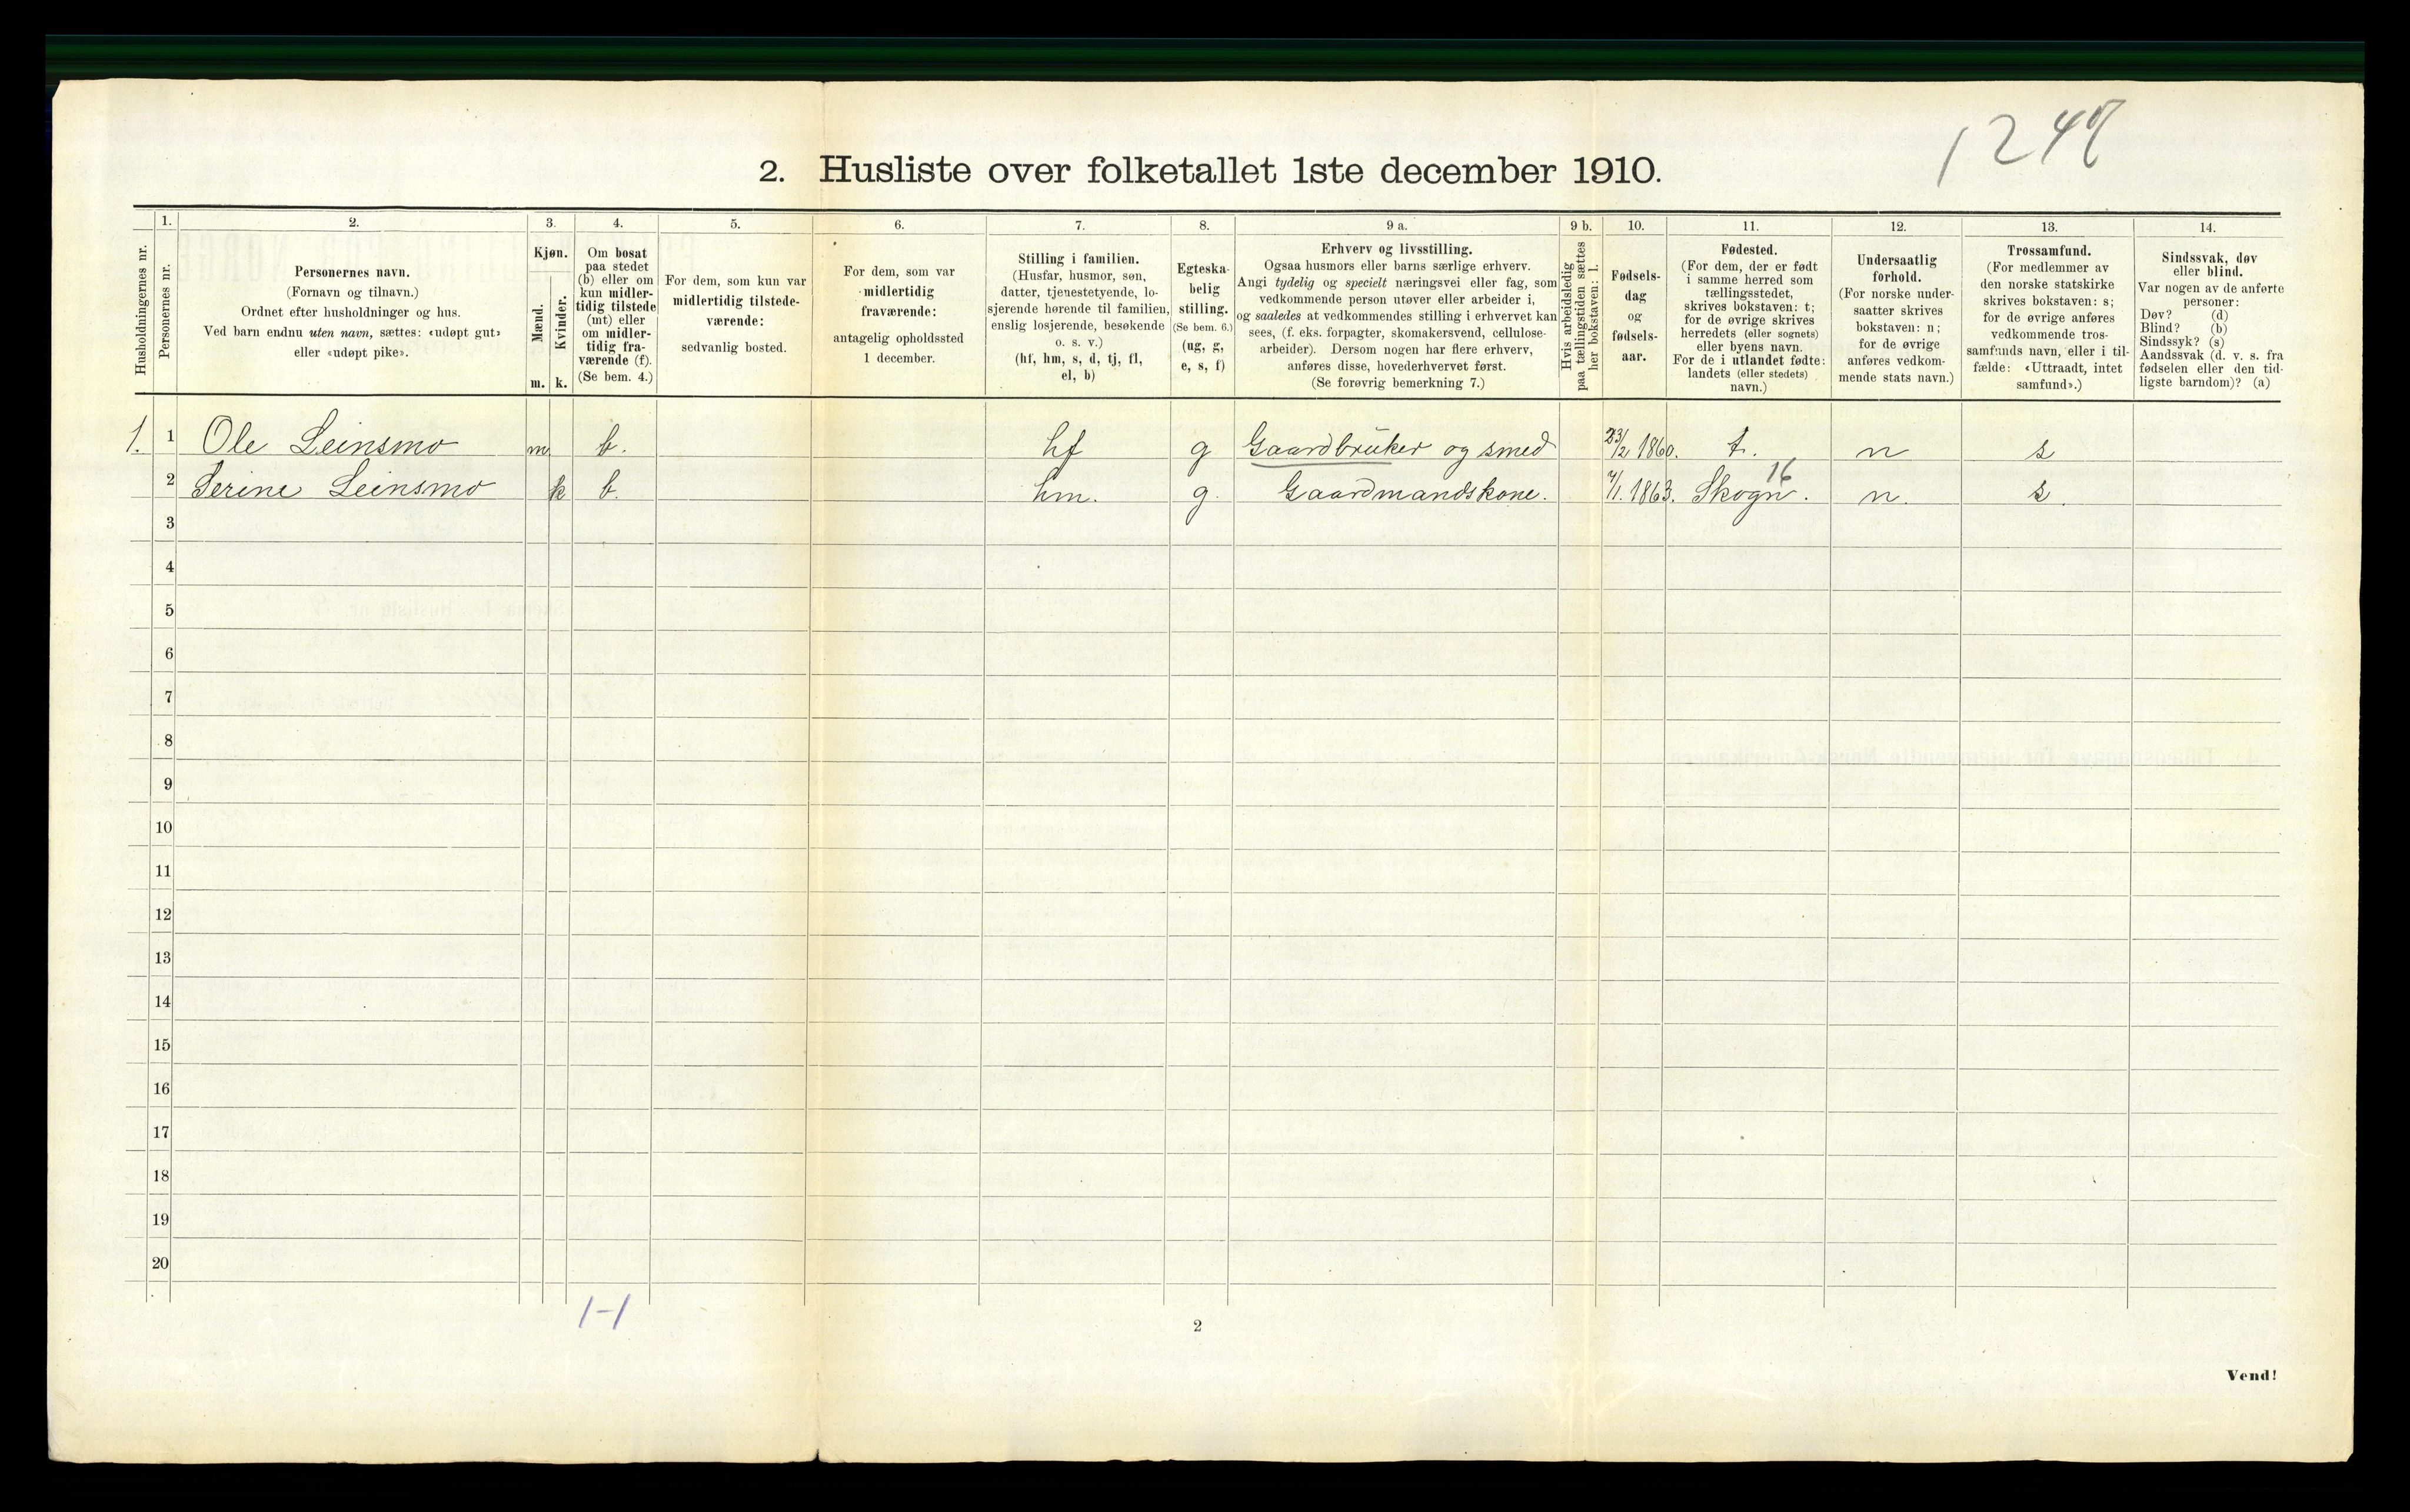 1247
2. Husliste over folketallet 1ste december 1910.
Husholdningernes nr.
1.
Personernes nr.
2.
Personernes navn.
(Fornavn og tilnavn.)
Ordnet efter husholdninger og hus.
Ved barn endnu uten navn, sættes: «udøpt gut»
eller «udøpt pike».
3.
Kjøn.
Mænd.
Kvinder.
m. k.
4.
Om bosat
paa stedet
(b) eller om
kun midler-
tidig tilstede
(mt) eller
om midler-
tidig fra-
værende (f).
(Se bem. 4.)
5.
For dem, som kun var
midlertidig tilstede-
værende:
sedvanlig bosted.
6.
For dem, som var
midlertidig
fraværende:
antagelig opholdssted
1 december.
7.
Stilling i familien.
(Husfar, husmor, søn,
datter, tjenestetyende, lo-
sjerende hørende til familien,
enslig losjerende, besøkende
o. s. v.)
(hf, hm, s, d, tj, fl,
el, b)
8.
Egteska-
belig
stilling.
(Se bem. 6.)
(ug, g,
e, s, f)
9 a.
Erhverv og livsstilling.
Ogsaa husmors eller barns særlige erhverv.
Angi tydelig og specielt næringsvei eller fag, som
vedkommende person utøver eller arbeider i,
og saaledes at vedkommendes stilling i erhvervet kan
sees, (f. eks. forpagter, skomakersvend, cellulose-
arbeider). Dersom nogen har flere erhverv,
anføres disse, hovederhvervet først.
(Se forøvrig bemerkning 7.)
9 b.
Hvis arbeidsledig
paa tællingstiden sættes
her bokstaven: l.
10.
Fødsels-
dag
og
fødsels-
aar.
11.
Fødested.
(For dem, der er født
i samme herred som
tællingsstedet,
skrives bokstaven: t;
for de øvrige skrives
herredets (eller sognets)
eller byens navn.
For de i utlandet fødte:
landets (eller stedets)
navn.)
12.
Undersaatlig
forhold.
(For norske under-
saatter skrives
bokstaven: n;
for de øvrige
anføres vedkom-
mende stats navn.)
13.
Trossamfund.
(For medlemmer av
den norske statskirke
skrives bokstaven: s;
for de øvrige anføres
vedkommende tros-
samfunds navn, eller i til-
fælde: «Uttraadt, intet
samfund».)
14.
Sindssvak, døv
eller blind.
Var nogen av de anførte
personer:
Døv? (d)
Blind? (b)
Sindssyk? (s)
Aandssvak (d. v. s. fra
fødselen eller den tid-
ligste barndom)? (a)
1. 1 Ole Leinsmo m b. hf g Gaardbruker og smed 23/2 1860. t. n s
16
2 Serine Leinsmo k b. hm. g. Gaardmandskone. 7/1. 1863. Skogn. n. s.
3
4
5
6
7
8
9
10
11
12
13
14
15
16
17
18
19
20
1-1
2
Vend!